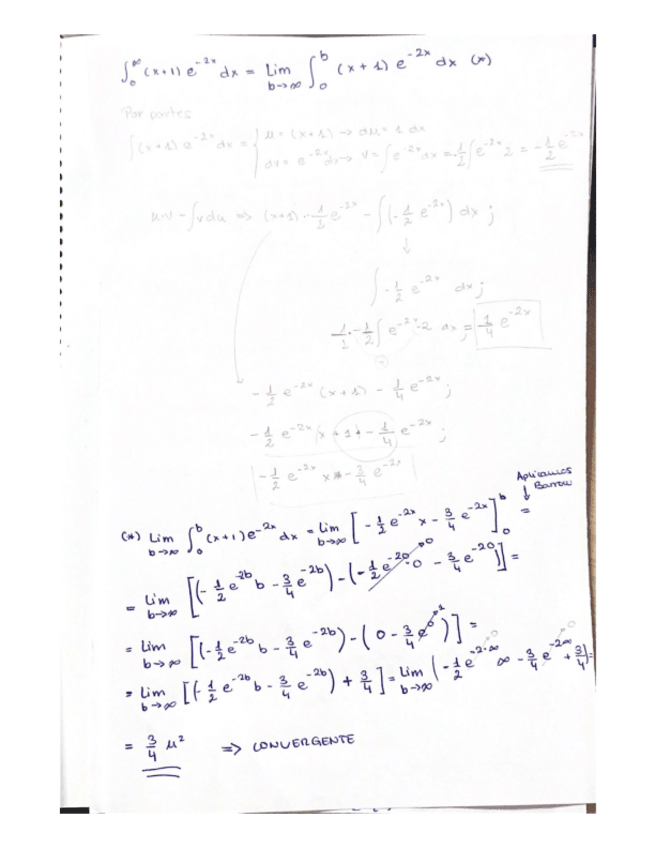 ∫₀^∞ (x+1) e^{-2x} dx = Lim_{b→∞} ∫₀^b (x+1) e^{-2x} dx (*)
Por partes
∫(x+1) e^{-2x} dx = { u = (x+1) → du = 1 dx
dv = e^{-2x} dx → v = ∫e^{-2x} dx = -1/2 ∫e^{-2x} 2 = -1/2 e^{-2x}
u·v - ∫v du ⇒ (x+1)·-1/2 e^{-2x} - ∫(-1/2 e^{-2x}) dx ;
↓
∫ -1/2 e^{-2x} dx ;
1/2·-1/2 ∫ e^{-2x}·2 dx = 1/4 e^{-2x}
-1/2 e^{-2x} (x+1) - 1/4 e^{-2x} ;
-1/2 e^{-2x} (x+1) - 1/4 e^{-2x} ;
-1/2 e^{-2x} x - 3/4 e^{-2x}
Aplicamos
↓ Barrow
(*) Lim_{b→∞} ∫₀^b (x+1) e^{-2x} dx = Lim_{b→∞} [-1/2 e^{-2x} x - 3/4 e^{-2x}]₀^b =
= Lim_{b→∞} [(-1/2 e^{-2b} b - 3/4 e^{-2b}) - (-1/2 e^{-2·0}·0 - 3/4 e^{-2·0})] =
= Lim_{b→∞} [(-1/2 e^{-2b} b - 3/4 e^{-2b}) - (0 - 3/4 e^0)] =
= Lim_{b→∞} [(-1/2 e^{-2b} b - 3/4 e^{-2b}) + 3/4] = Lim_{b→∞} (-1/2 e^{-2·∞} ∞ - 3/4 e^{-2∞} + 3/4) =
= 3/4 u² ⇒ CONVERGENTE